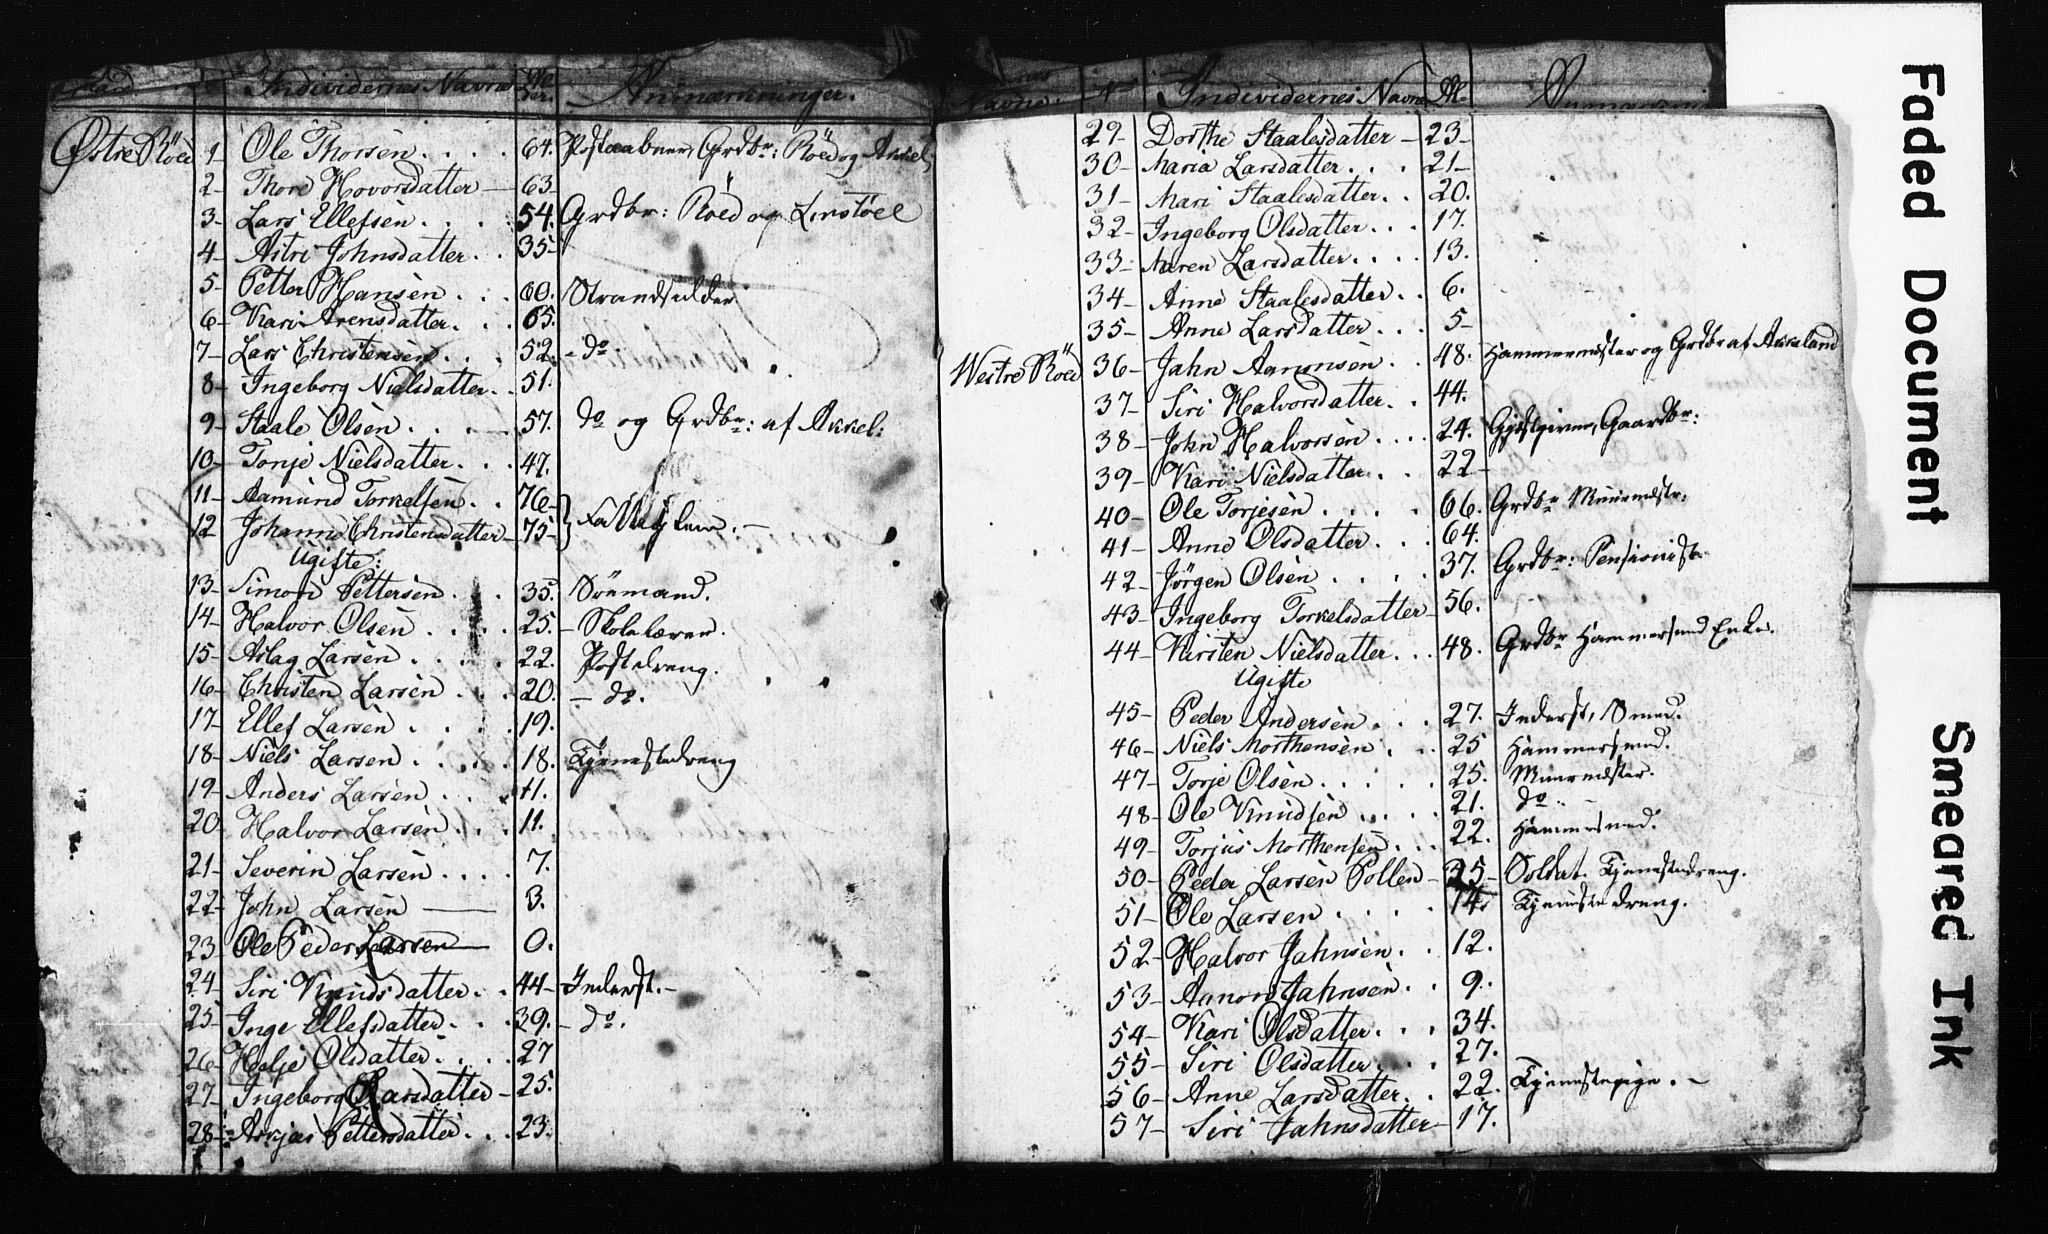 Individernes Navne Anmærkninger.
Østre Röed 1 Ole Thorsen 64. Postaabner, Grdbr: Röed og Akkel
2 Thore Hovorsdatter 63
3 Lars Ellefsen 54. Grdbr: Röed og Linstöel
4 Astri Johnsdatter 35
5 Petter Hansen 60. Strandsidder
6 Kari Arensdatter 65.
7 Lars Christensen 52. do
8 Ingeborg Nielsdatter 51.
9 Staale Olsen 57. do og Grdbr: af Akkel:
10 Tonje Nielsdatter 47.
11 Aamund Torkelsen 76
12 Johanne Christensdatter 75
Ugifte:
13 Simon Pettersen 35. Söemand.
14 Halvor Olsen 25. Skolelærer.
15 Aslag Larsen 22. Postdreng.
16 Christen Larsen 20. do.
17 Ellef Larsen 19.
18 Niels Larsen 18. Tjenestedreng
19 Anders Larsen 11.
20 Halvor Larsen 11.
21 Severin Larsen 7.
22 John Larsen 3.
23 Ole Peder Larsen 0.
24 Siri Knudsdatter 44 Inderst.
25 Inge Ellefsdatter 39. do.
26 Helje Olsdatter 27
27 Ingeborg Larsdatter 25.
28 Pettersdatter 23.
Navne. No Individernes Navne Al.
29 Dorthe Staalesdatter 23
30 Maria Larsdatter 21
31 Mari Staalesdatter 20.
32 Ingeborg Olsdatter 17.
33 Maren Larsdatter 13.
34 Anne Staalesdatter 6.
35 Anne Larsdatter 5
Westre Röed 36 Jahn Aanonsen 48. Hammermester og Grdbr af Akkeland
37 Siri Halvorsdatter 44.
38 John Halvorsen 24. Gjestgiver, Gaardbr:
39 Kari Nielsdatter 22
40 Ole Torjesen 66. Grdbr Muurmestr:
41 Anne Olsdatter 64.
42 Jörgen Olsen 37. Grdbr: Pensionist
43 Ingeborg Torkelsdatter 56.
44 Kirsten Nielsdatter 48. Grdbr Hammersmed Enke.
Ugifte
45 Peder Andersen 27. Inderst, Smed.
46 Niels Morthensen 25 Hammersmed.
47 Torje Olsen 25. Muurmester.
48 Ole Knudsen 21. do
49 Torjus Morthensen 22. Hammersmed.
50 Peder Larsen Pollen 35 Soldat. Tjenestedreng.
51 Ole Larsen 14. Tjenestedreng.
52 Halvor Jahnsen 12.
53 Aanon Jahnsen 9.
54 Kari Olsdatter 34.
55 Siri Olsdatter 27.
56 Anne Larsdatter 22. Tjenestepige.
57 Siri Jahnsdatter 17.
Faded Document
Smeared Ink